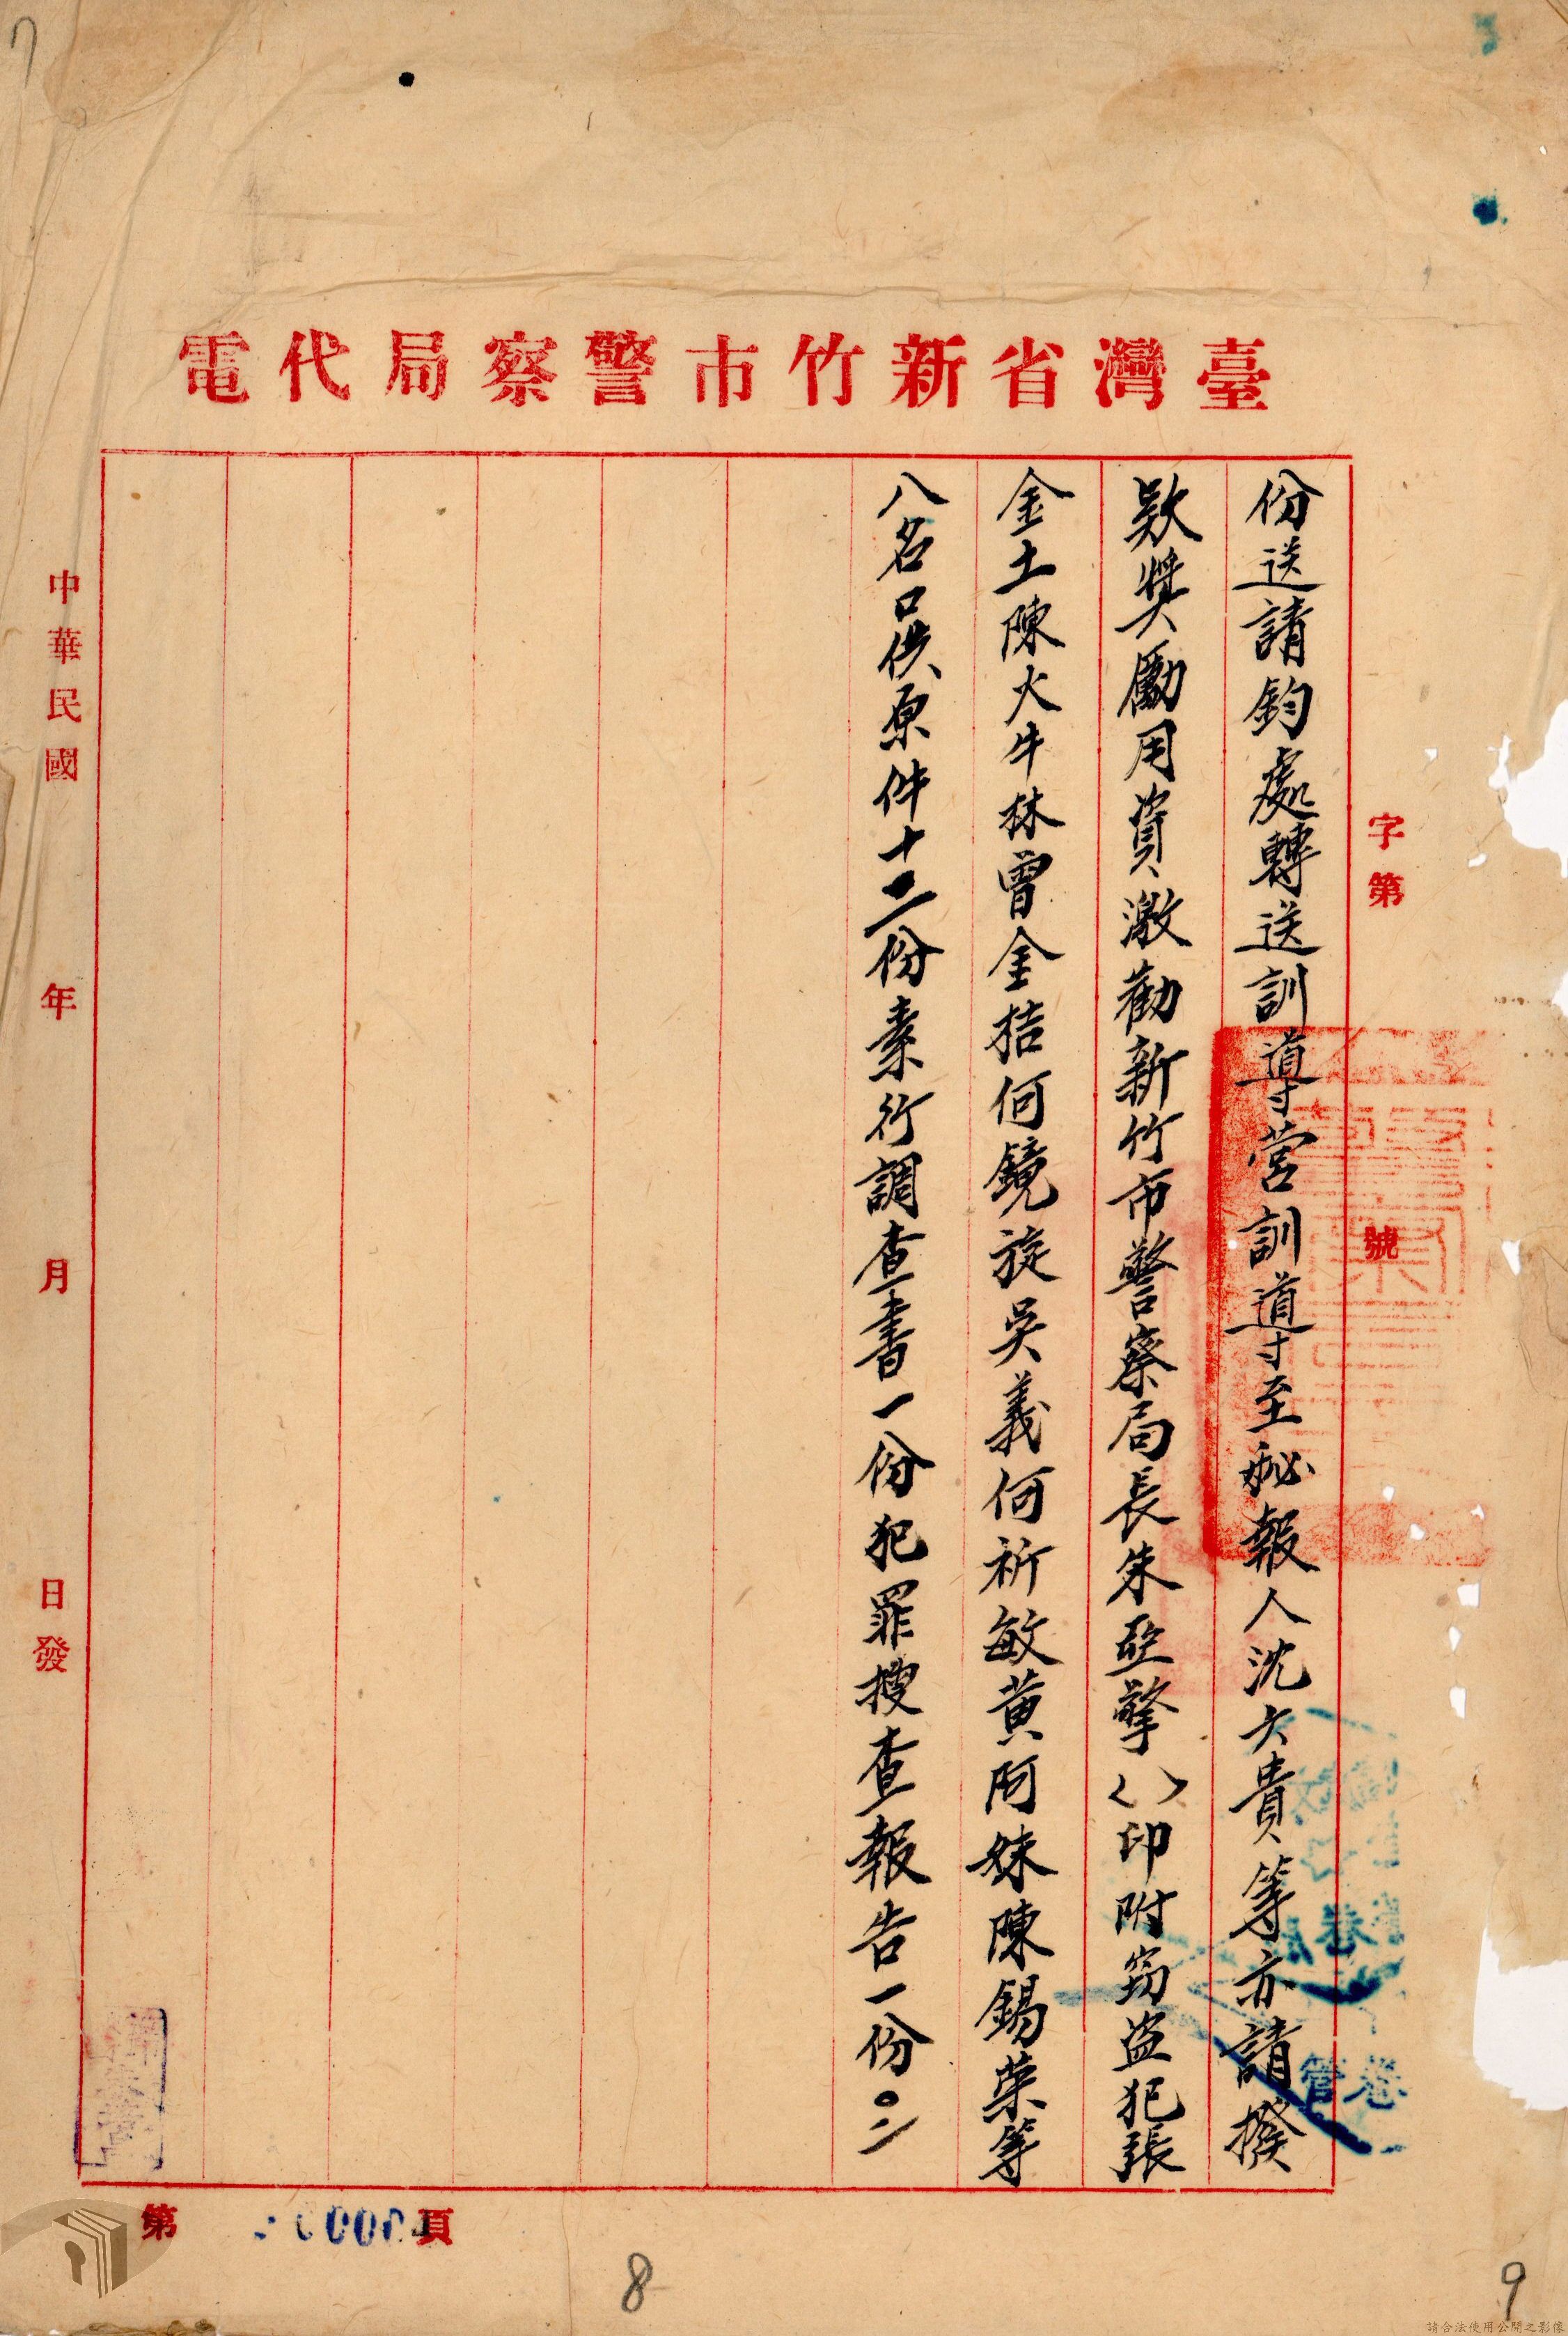 臺灣省新竹市警察局代電
字第 號
份送請鈞處轉送訓導營訓導至秘報人沈大貴等亦請撥
欵奬勵用資激勸新竹市警察局長朱亞擎〈〉印附窃盜犯張
金土陳火牛林曾金桔何鏡旋吳義何祈敏黃阿妹陳錫荣等
八名口供原件十二份素行調查書一份犯罪搜查報告一份。
中華民國 年 月 日發
第 頁
7
8
9
請合法使用公開之影像